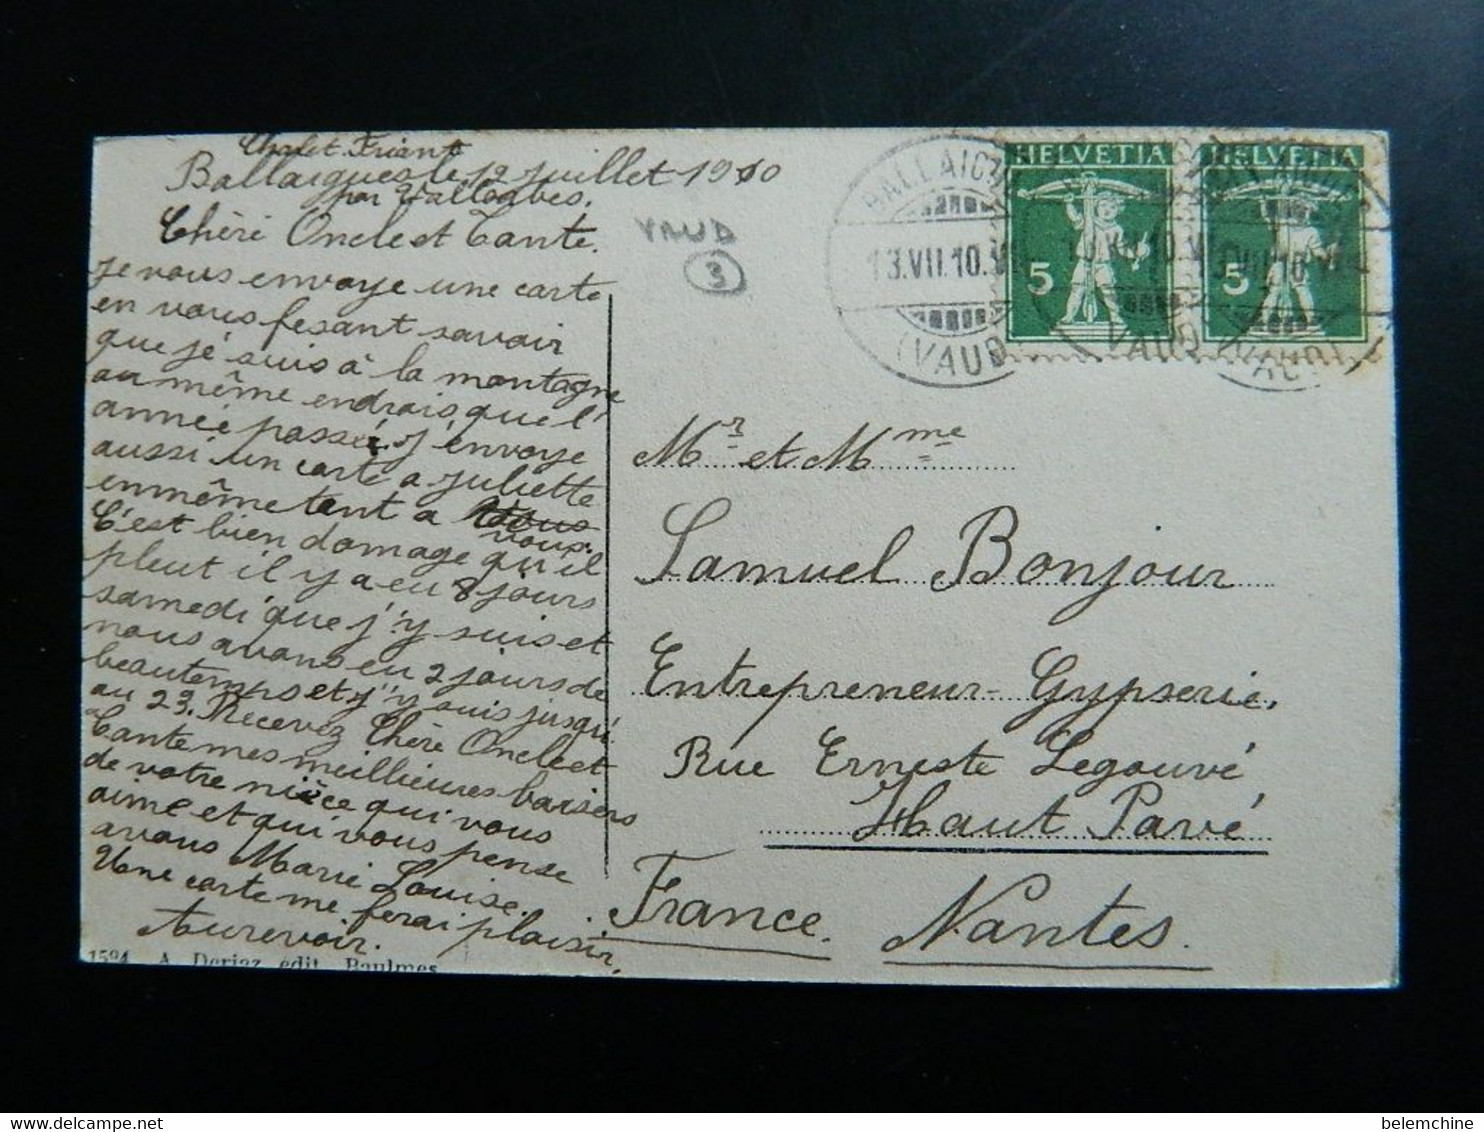 Chalet Friant
Ballaigues le 12 juillet 1910
par Vallorbes.
Chère Oncle et Tante.
Je vous envoye une carte
en vous fesant savoir
que je suis à la montagne
au même endrais que l'
année passée. j'envoye
aussi un carte a Juliette
en même tent a vous
vous.
C'est bien domage qu'il
pleut il y a eu 8 jours
samedi que j'y suis et
nous avons eu 2 jours de
beautemps et j'y suis jusqu'
au 23. Recevez Chère Oncle et
Tante mes meillieures baisers
de votre nièce qui vous
aime et qui vous pense
avous Marie Louise.
Une carte me ferai plaisir.
Aurevoir.
1594 A. Deriaz édit. Baulmes
VAUD
3
BALLAIGUES
13.VII.10.VI
(VAUD)
HELVETIA
5
HELVETIA
5
Mr et Mme
Samuel Bonjour
Entrepreneur-Gypserie.
Rue Erneste Legouvé
Haut Pavé
France. Nantes.
belemchine